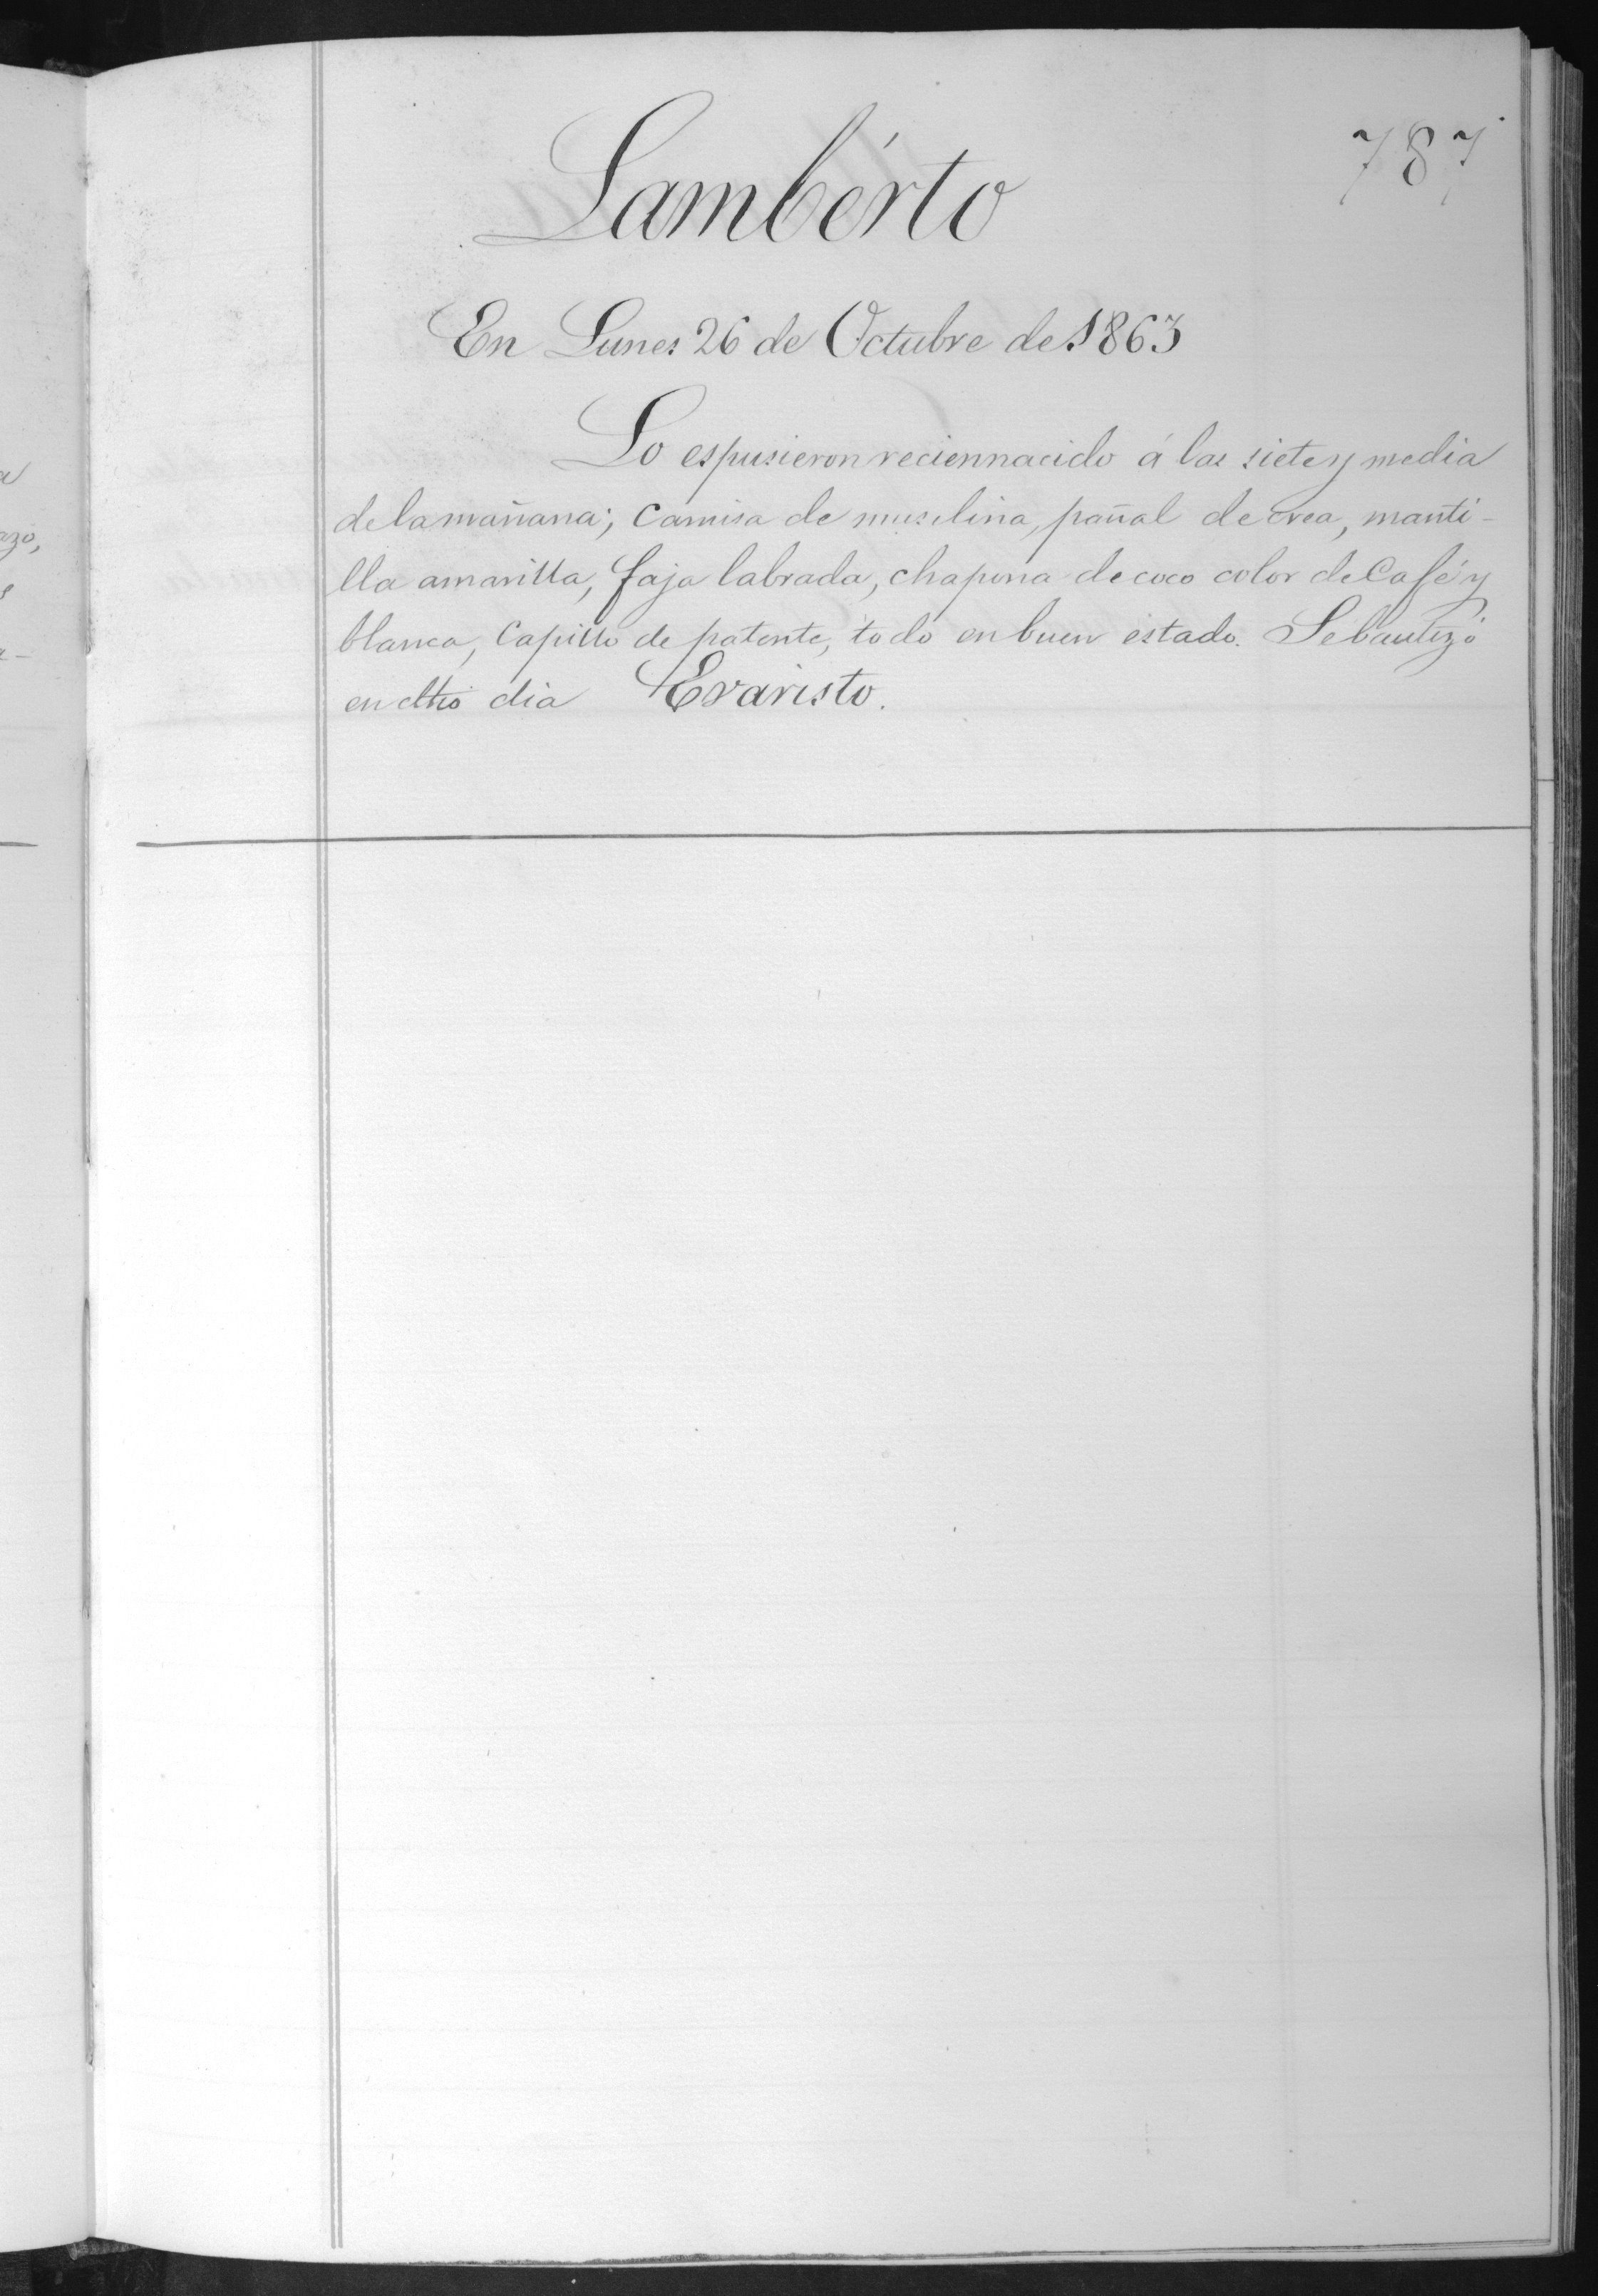 787
Lambérto
En Lunes 26 de Octubre de 1863
Lo espusieron reciennacido á las siete y media
de la mañana; camisa de muselina, pañal de crea, manti-
lla amarilla, faja labrada, chapona de coco color de Café y
blanca, Capillo de patente, todo en buen estado. Se bautizó
en dho dia Evaristo.